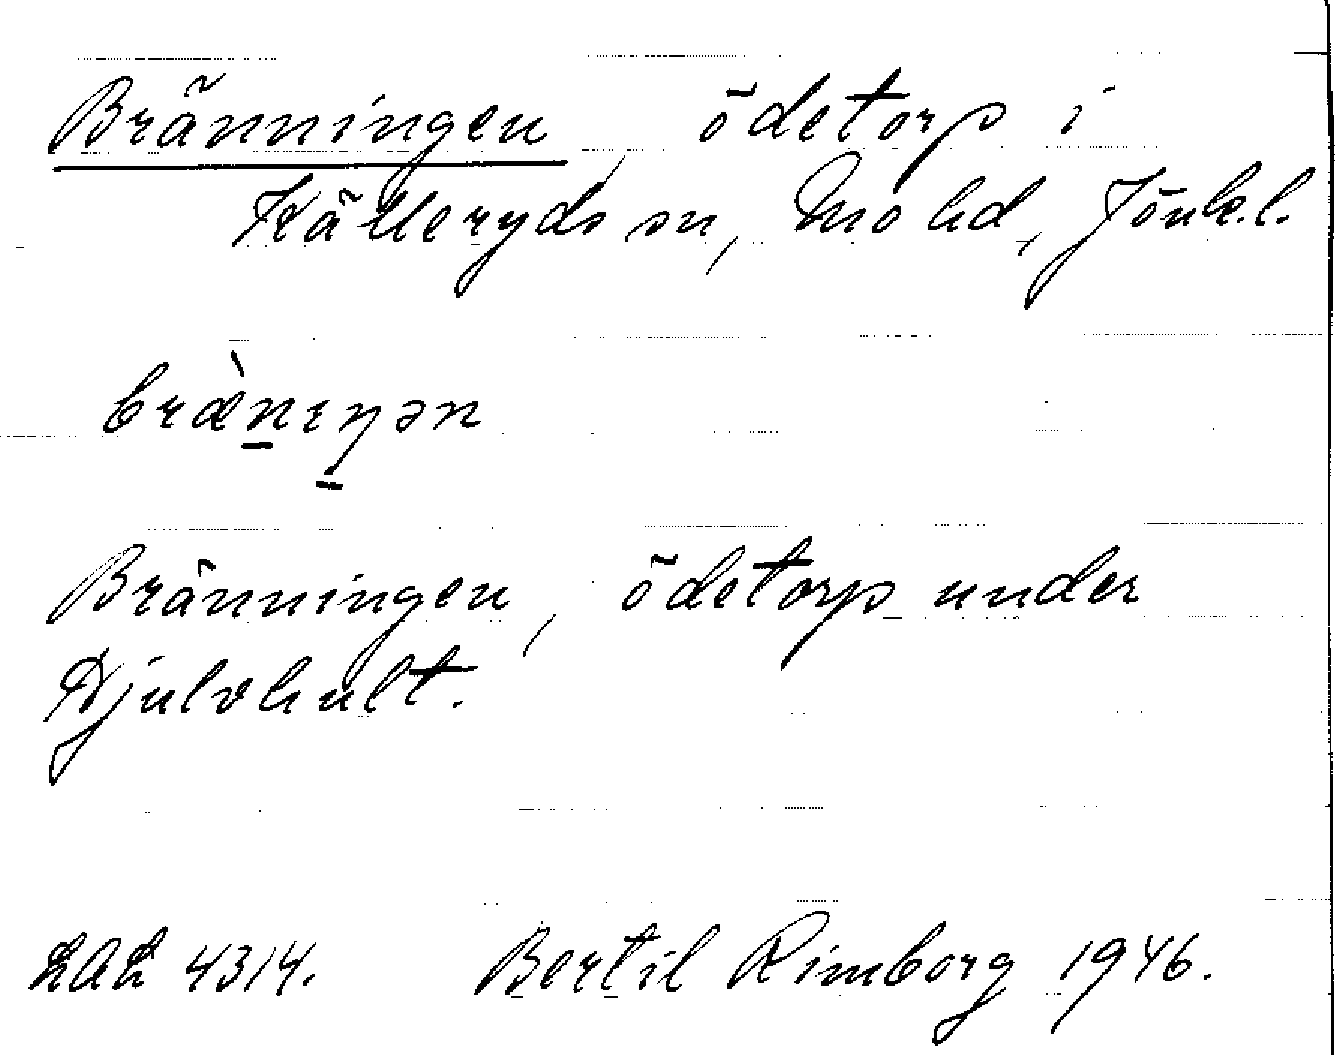 Bränningen, ödetorp i
Källeryds sn, Mo hd, Jönk.l.
bræ̀nıŋən
Bränningen, ödetorp under
Djulvhult.
LAL 4314. Bertil Rimborg 1946.